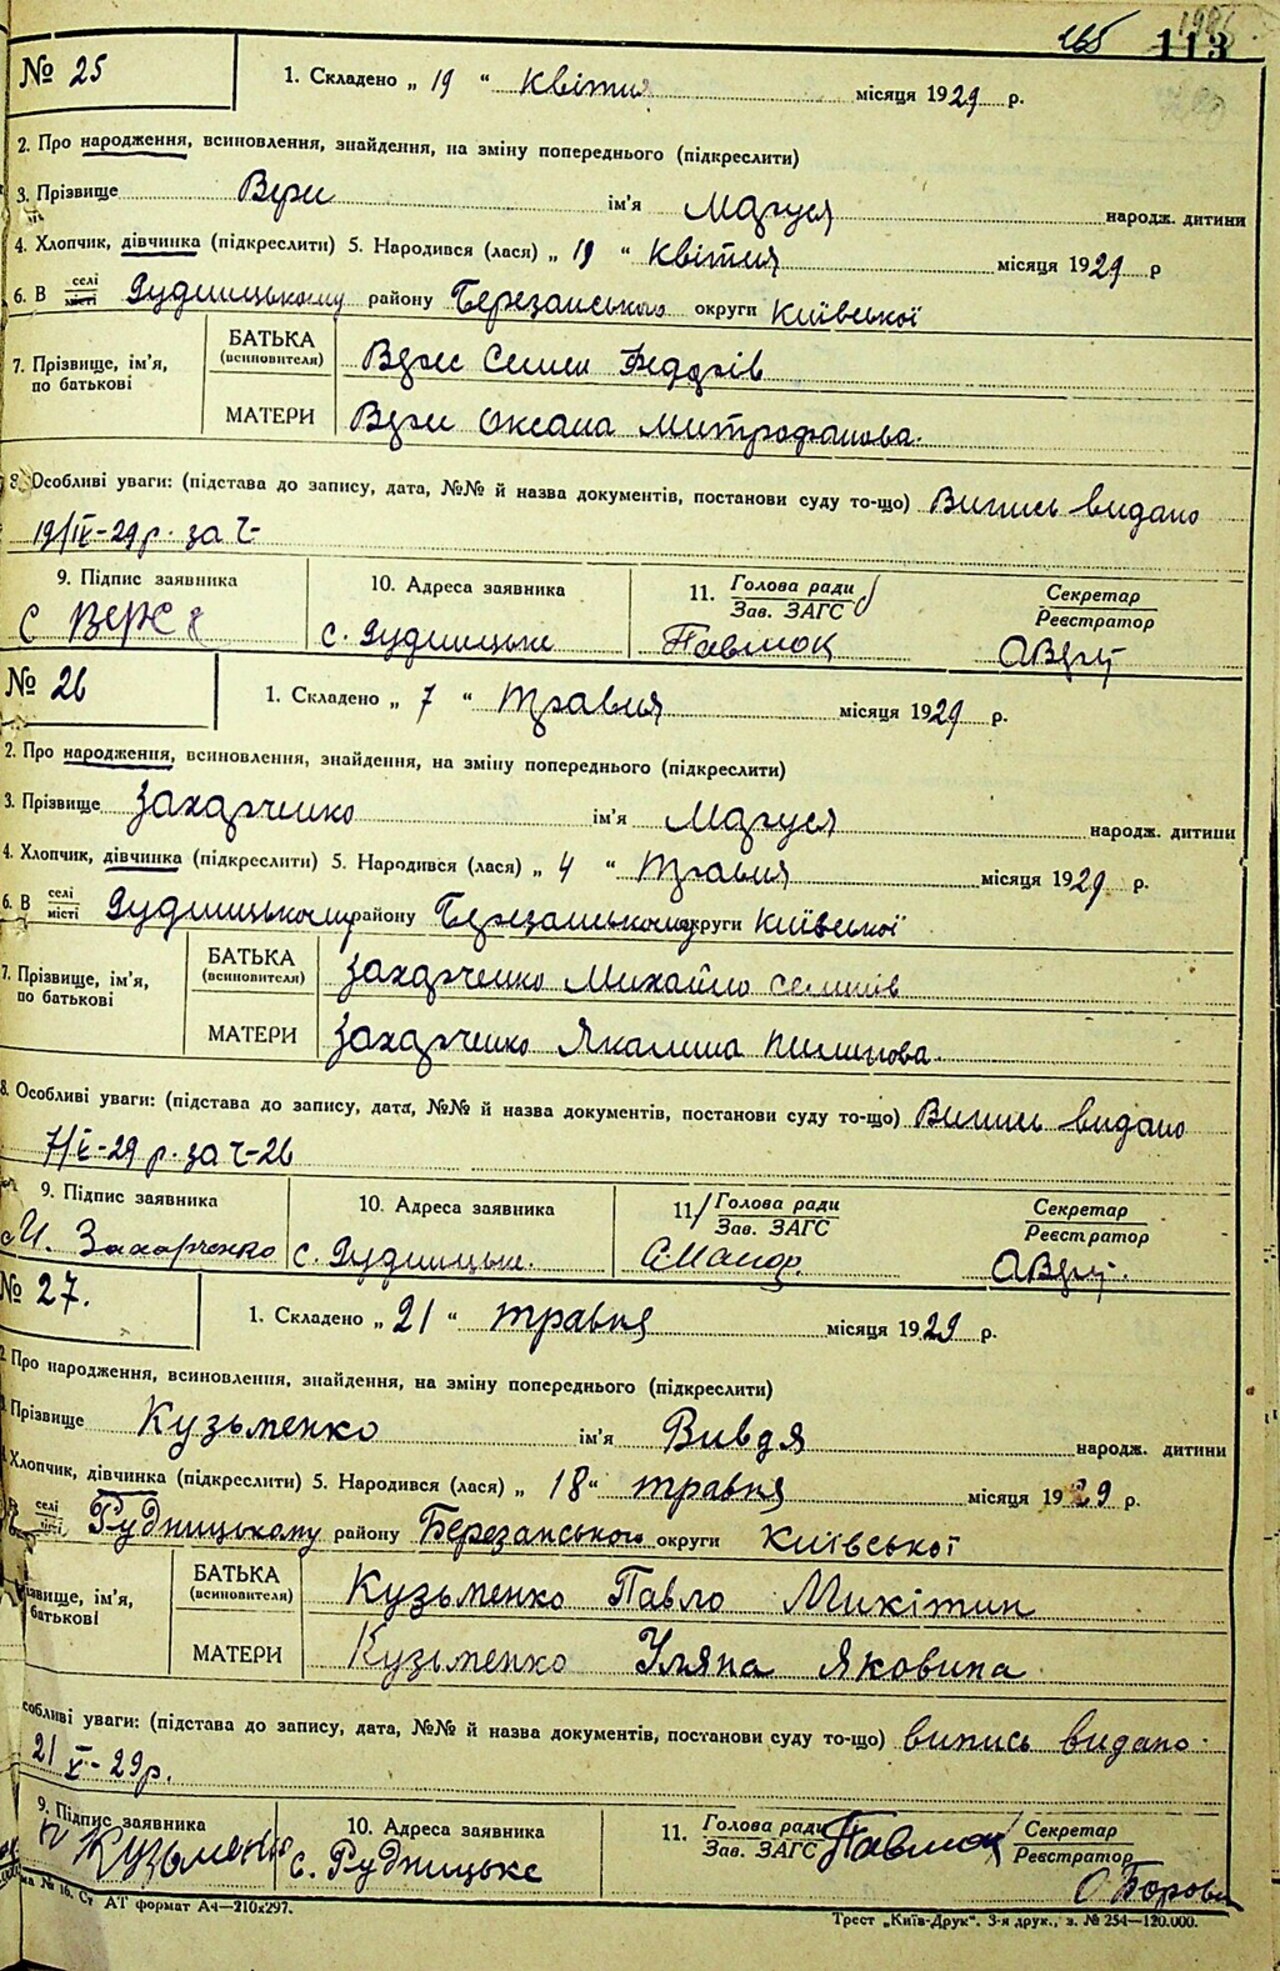 265 113
№ 25
1. Складено „ 19 “ Квітня місяця 1929 р.
2. Про народження, всиновлення, знайдення, на зміну попереднього (підкреслити)
3. Прізвище ім'я Маруся народж. дитини
4. Хлопчик, дівчинка (підкреслити) 5. Народився (лася) „ 19 “ Квітня місяця 1929 р
6. В селі місті Рудницькому району Березанського округи Київської
7. Прізвище, ім'я, по батькові
БАТЬКА (всиновителя) Семен Федорів
МАТЕРИ Оксана Митрофанова.
8. Особливі уваги: (підстава до запису, дата, №№ й назва документів, постанови суду то-що) Випись видано
19/IV-29 р. за Ч-
9. Підпис заявника 10. Адреса заявника 11. Голова ради Зав. ЗАГС Секретар Реєстратор
С с. Рудницьке Павлюк
№ 26
1. Складено „ 7 “ травня місяця 1929 р.
2. Про народження, всиновлення, знайдення, на зміну попереднього (підкреслити)
3. Прізвище Захарченко ім'я Маруся народж. дитини
4. Хлопчик, дівчинка (підкреслити) 5. Народився (лася) „ 4 “ травня місяця 1929 р.
6. В селі місті Рудницькому району Березанському округи Київської
7. Прізвище, ім'я, по батькові
БАТЬКА (всиновителя) Захарченко Михайло Семенів
МАТЕРИ Захарченко Якилина Пилипова.
8. Особливі уваги: (підстава до запису, дата, №№ й назва документів, постанови суду то-що) Випись видано
7/V-29 р. за Ч-26
9. Підпис заявника 10. Адреса заявника 11. Голова ради Зав. ЗАГС Секретар Реєстратор
М. Захарченко с. Рудницьке.
№ 27.
1. Складено „ 21 “ травня місяця 1929 р.
2 Про народження, всиновлення, знайдення, на зміну попереднього (підкреслити)
Прізвище Кузьменко ім'я Вивдя народж. дитини
Хлопчик, дівчинка (підкреслити) 5. Народився (лася) „ 18 “ травня місяця 1929 р.
В селі місті Рудницькому району Березанського округи Київської
Прізвище, ім'я, батькові
БАТЬКА (всиновителя) Кузьменко Павло Микітин
МАТЕРИ Кузьменко Уляна Яковина
собливі уваги: (підстава до запису, дата, №№ й назва документів, постанови суду то-що) випись видано
21 V-29р.
9. Підпис заявника 10. Адреса заявника 11. Голова ради Зав. ЗАГС Секретар Реєстратор
П Кузьменко с. Рудницьке Павлюк
ма № 16. Ст АТ формат А4—210х297.
Трест „Київ-Друк“. 3-я друк., з. № 254—120.000.